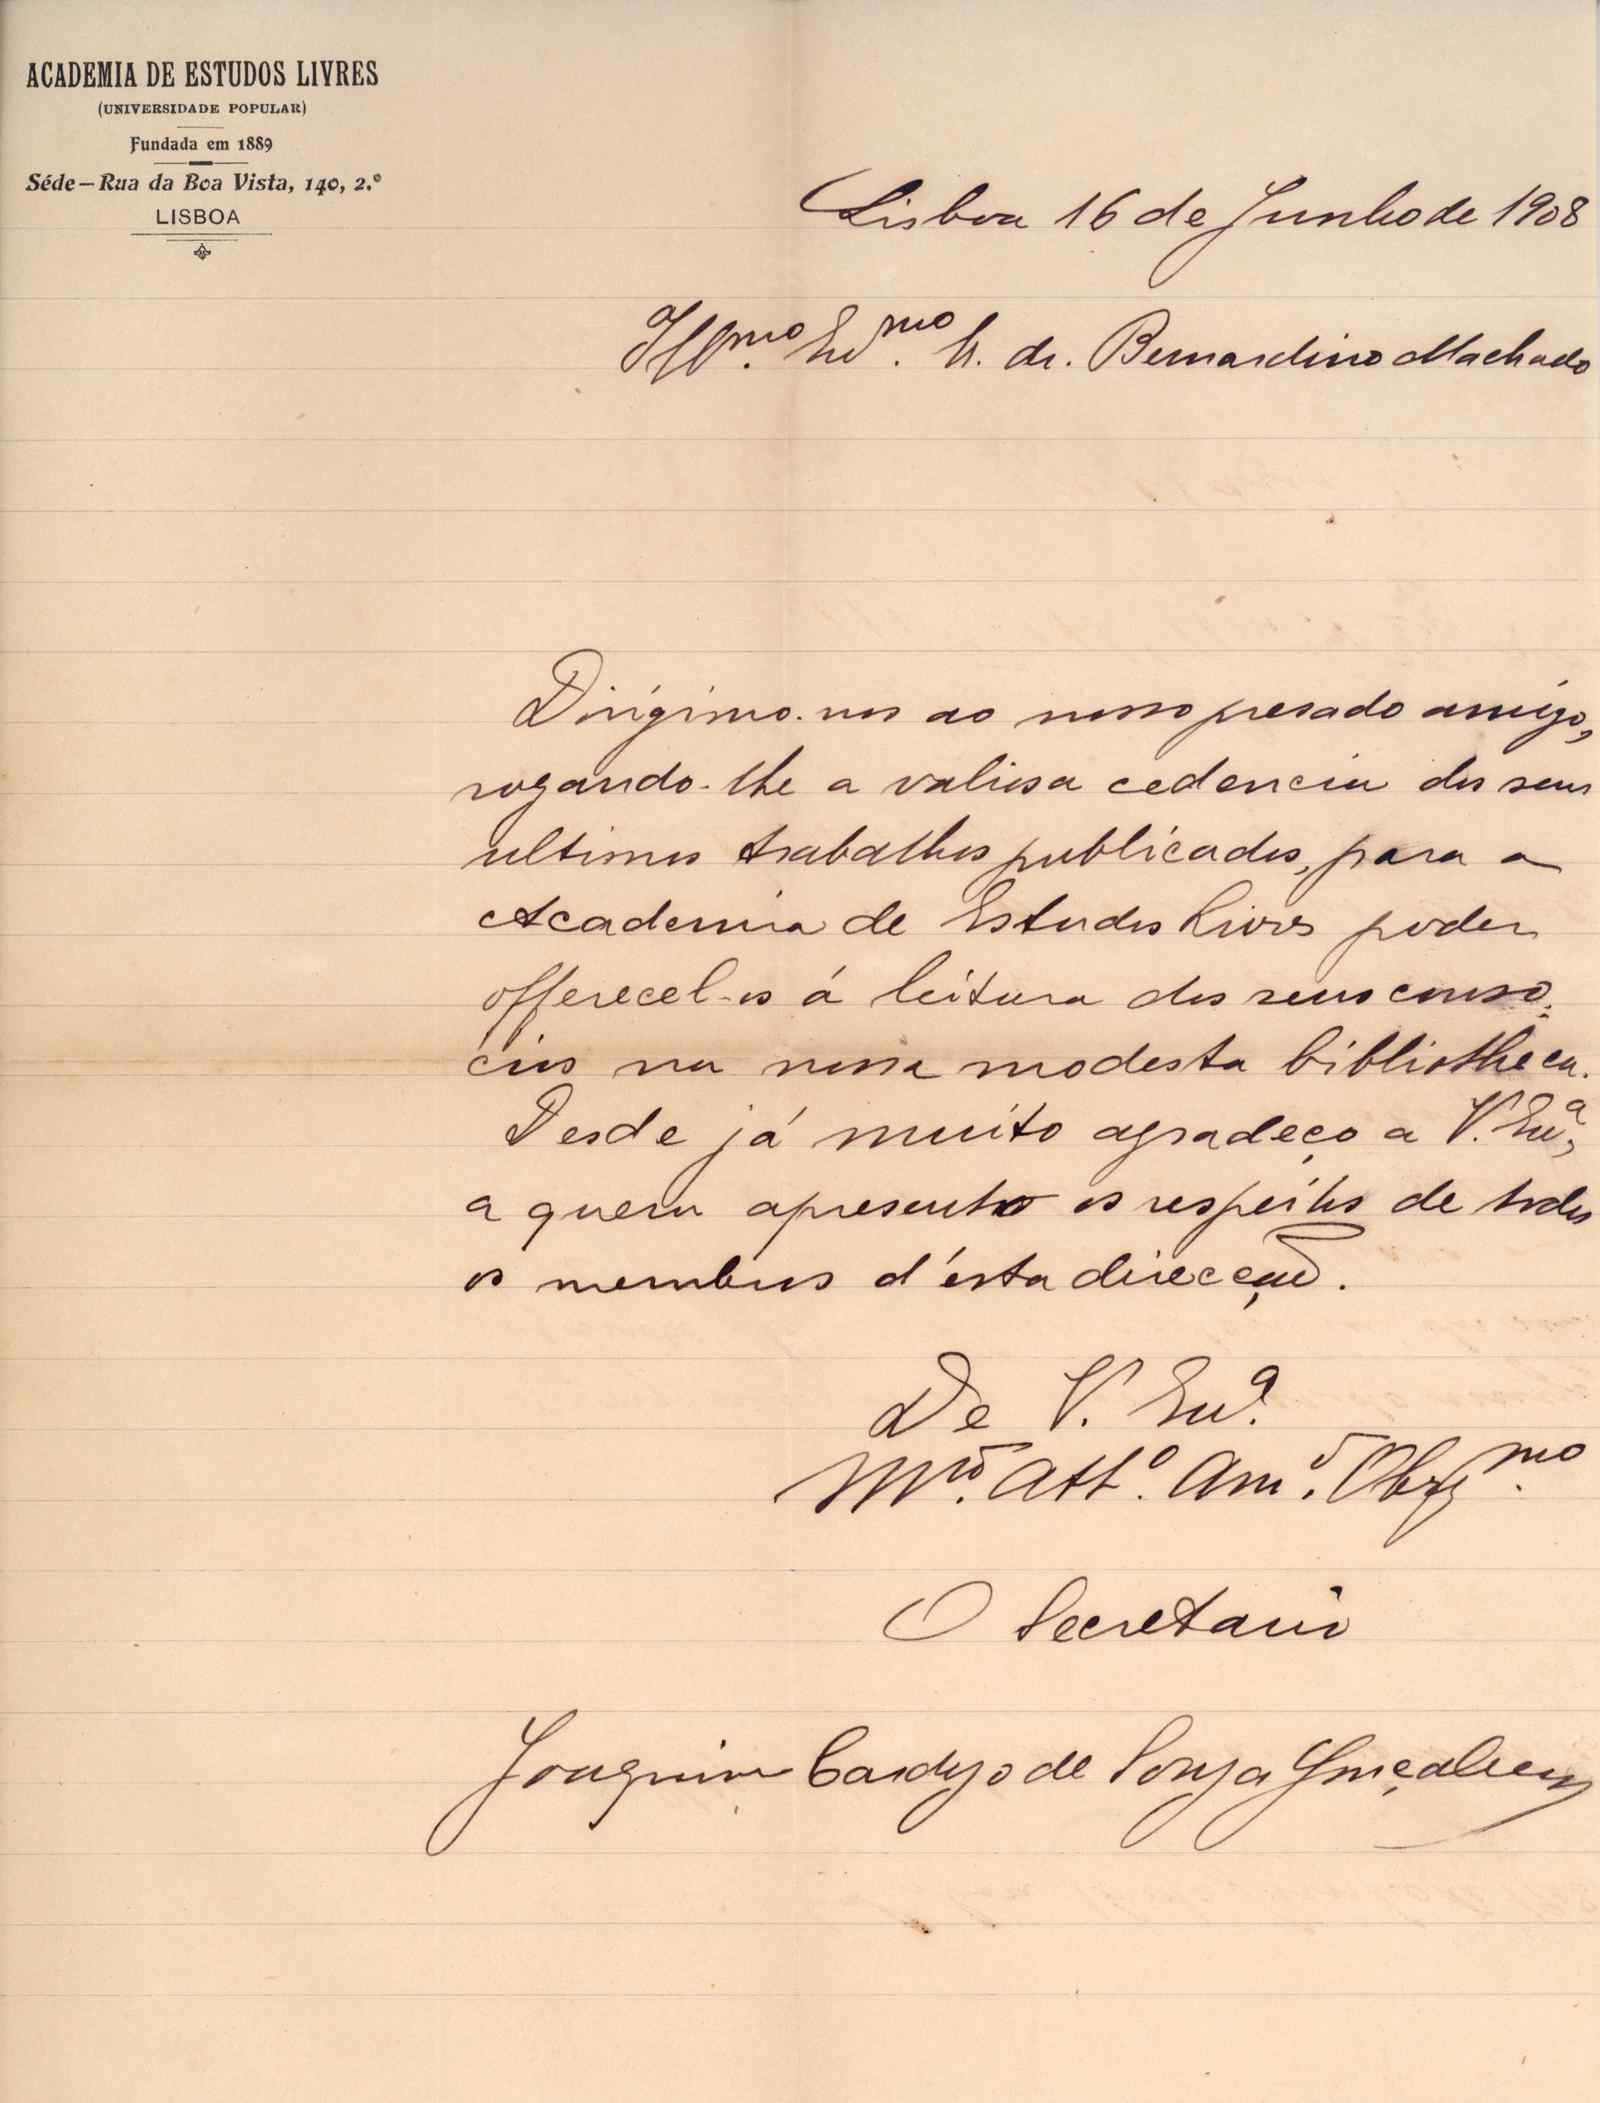 ACADEMIA DE ESTUDOS LIVRES
(UNIVERSIDADE POPULAR)
Fundada em 1889
Séde—Rua da Boa Vista, 140, 2.º
LISBOA
Lisboa 16 de Junho de 1908
Illmo. Exmo. Sr. dr. Bernardino Machado
Dirigimo-nos ao nosso presado amigo,
rogando-lhe a valiosa cedencia dos seus
ultimos trabalhos publicados, para a
Academia de Estudos Livres poder
offerecel-os á leitura dos seus conso-
cios na nossa modesta bibliotheca.
Desde já muito agradeço a V. Exa,
a quem apresento os respeitos de todos
os membros d'esta direcção.
De V. Exa.
Mto. Atto. Amo. Obrgmo.
O Secretario
Joaquim Cardozo de Souza Gonçalves